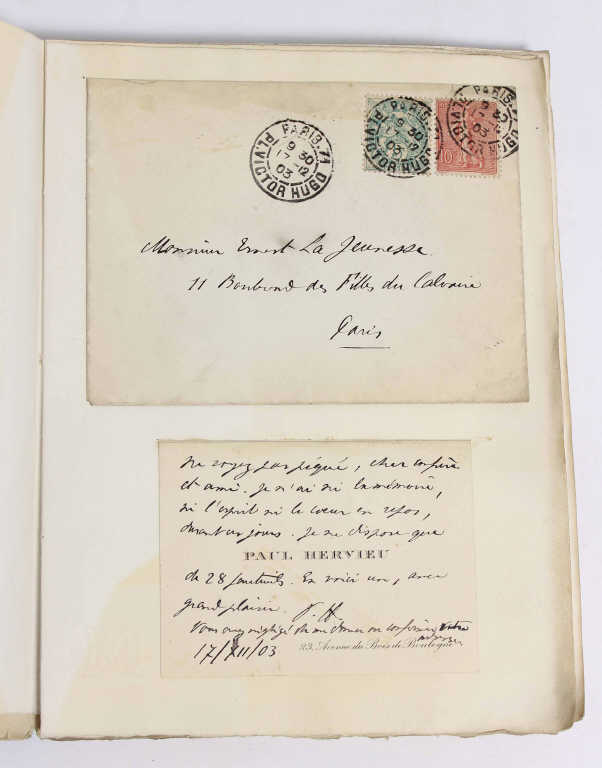 PARIS 71
9 30
17-12
03
PL. VICTOR HUGO
PARIS
9 30
12
03
PL VICTOR HUGO
10
PARIS 71
9 30
17-12
03
PL VICTOR HUGO
Monsieur Ernest La Jeunesse
11 Boulevard des Filles du Calvaire
Paris
Ne soyez pas piqué, cher confrère
et ami. Je n'ai ni la mémoire,
ni l'esprit ni le coeur en repos,
durant ces jours. Je ne dispose que
PAUL HERVIEU
de 28 fauteuils. En voici un, avec
grand plaisir. P. H
Vous avez négligé de me donner ou confirmer votre
adresse
17/XII/03
23, Avenue du Bois de Boulogne